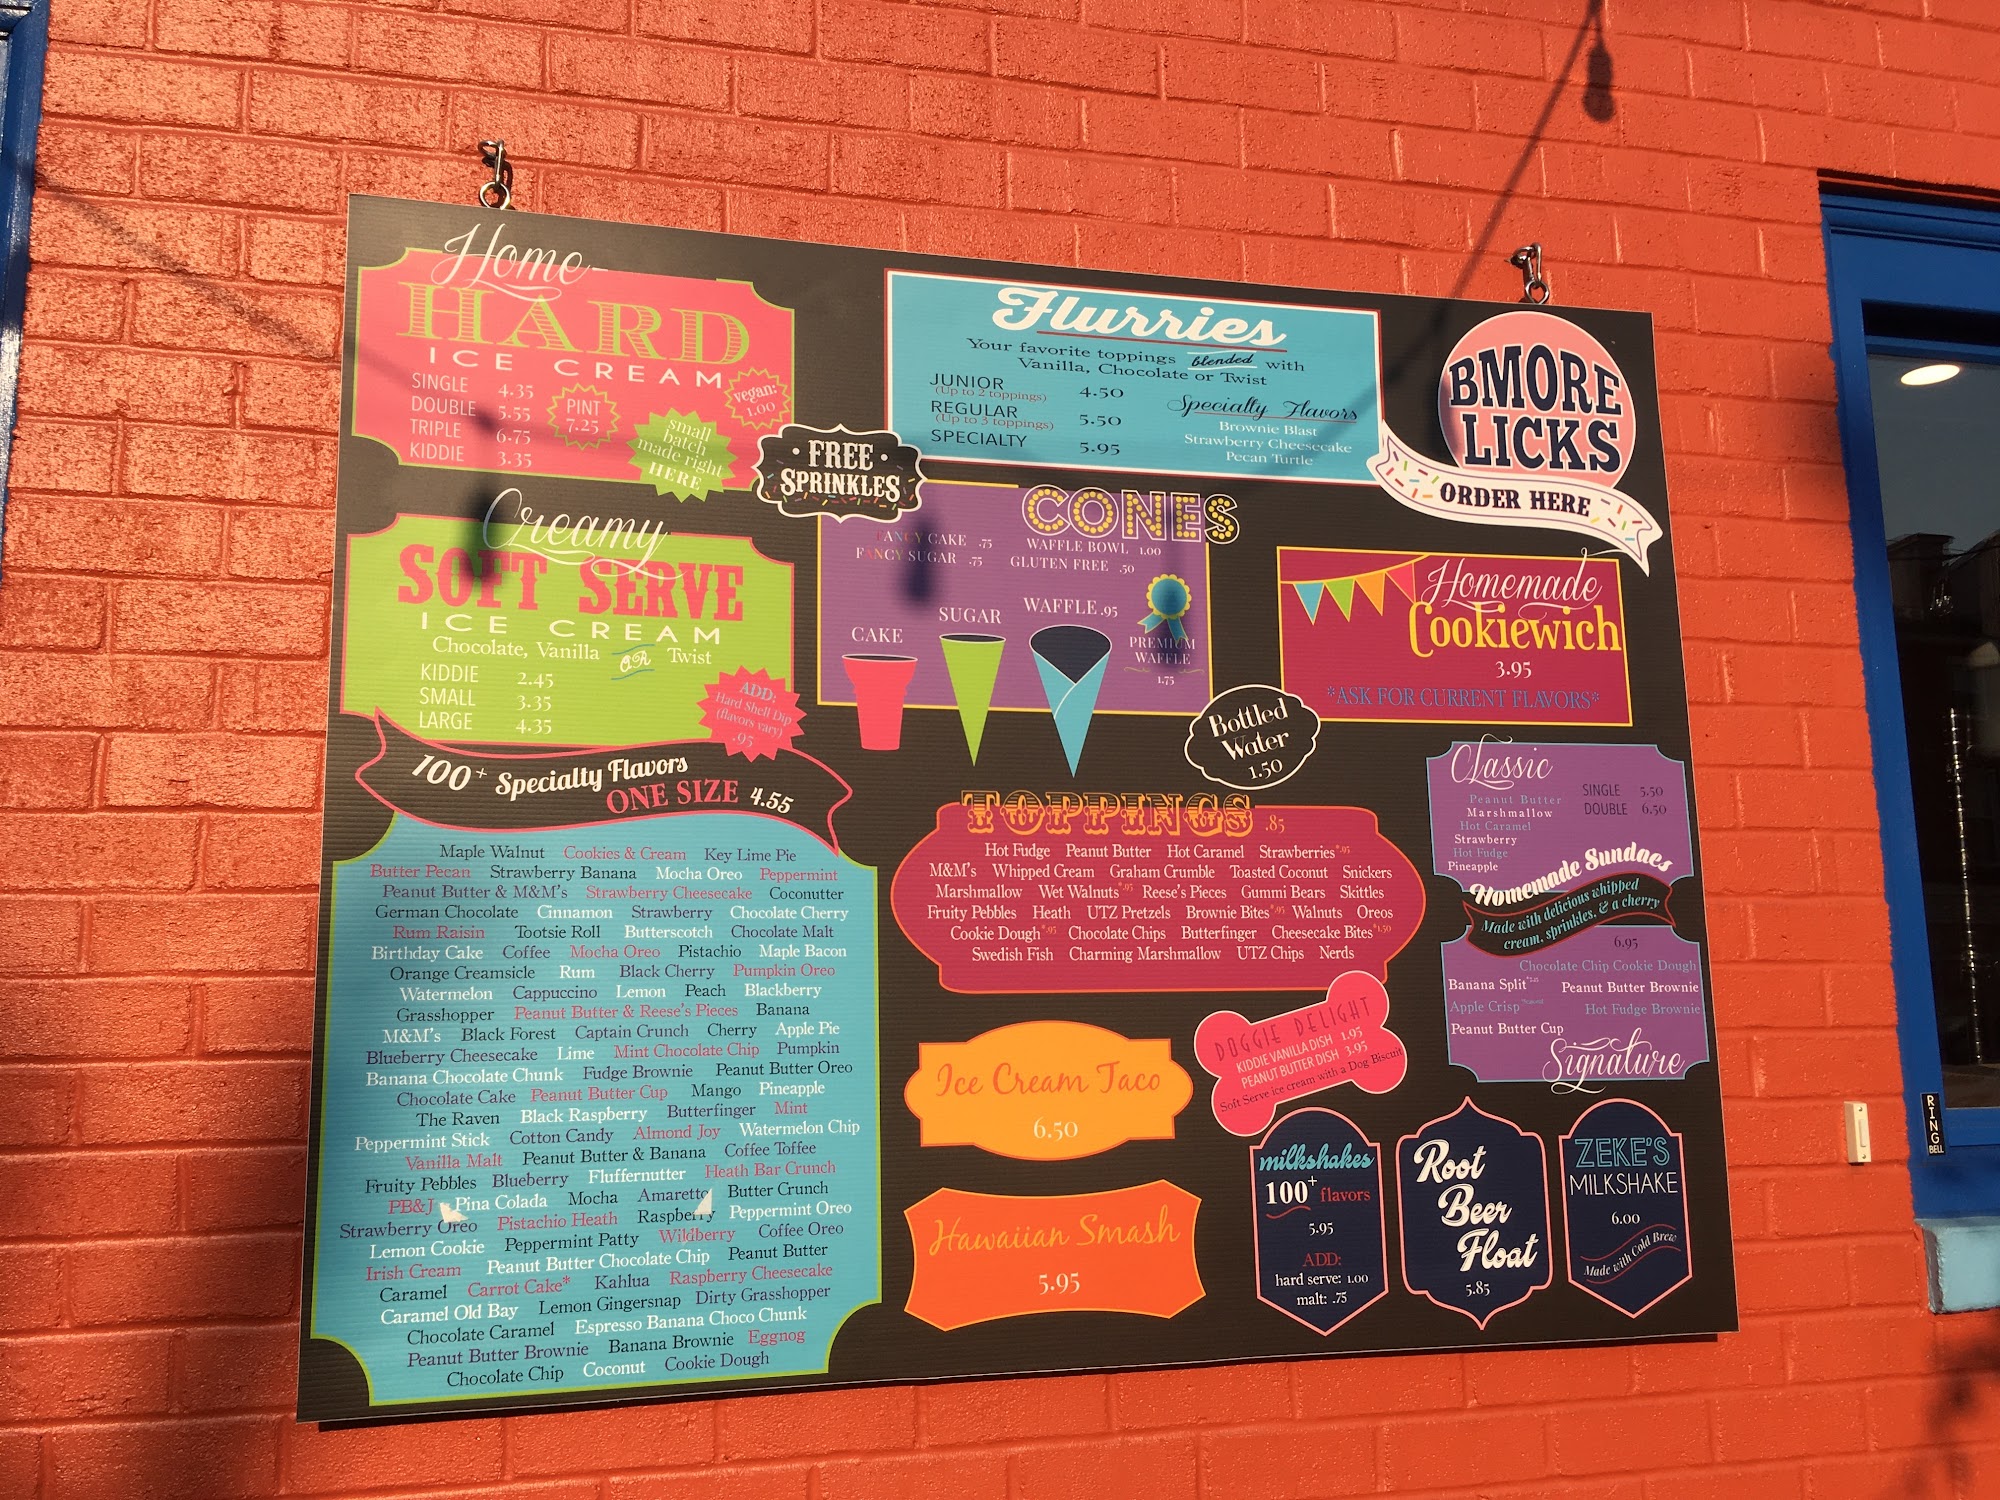 Home-
HARD
ICE CREAM
SINGLE 4.35
DOUBLE 5.55
TRIPLE 6.75
KIDDIE 3.35
PINT
7.25
vegan:
1.00
small
batch
made right
HERE
FREE
SPRINKLES
Flurries
Your favorite toppings blended with
Vanilla, Chocolate or Twist
JUNIOR 4.50
(Up to 2 toppings)
REGULAR 5.50
(Up to 3 toppings)
SPECIALTY 5.95
Specialty Flavors
Brownie Blast
Strawberry Cheesecake
Pecan Turtle
BMORE
LICKS
ORDER HERE
Creamy
SOFT SERVE
ICE CREAM
Chocolate, Vanilla OR Twist
KIDDIE 2.45
SMALL 3.35
LARGE 4.35
ADD:
Hard Shell Dip
(flavors vary)
.95
CONES
FANCY CAKE .75 WAFFLE BOWL 1.00
FANCY SUGAR .75 GLUTEN FREE .50
CAKE
SUGAR
WAFFLE .95
PREMIUM
WAFFLE
1.75
Homemade
Cookiewich
3.95
*ASK FOR CURRENT FLAVORS*
Bottled
Water
1.50
100+ Specialty Flavors
ONE SIZE 4.55
Maple Walnut Cookies & Cream Key Lime Pie
Butter Pecan Strawberry Banana Mocha Oreo Peppermint
Peanut Butter & M&M's Strawberry Cheesecake Coconutter
German Chocolate Cinnamon Strawberry Chocolate Cherry
Rum Raisin Tootsie Roll Butterscotch Chocolate Malt
Birthday Cake Coffee Mocha Oreo Pistachio Maple Bacon
Orange Creamsicle Rum Black Cherry Pumpkin Oreo
Watermelon Cappuccino Lemon Peach Blackberry
Grasshopper Peanut Butter & Reese's Pieces Banana
M&M's Black Forest Captain Crunch Cherry Apple Pie
Blueberry Cheesecake Lime Mint Chocolate Chip Pumpkin
Banana Chocolate Chunk Fudge Brownie Peanut Butter Oreo
Chocolate Cake Peanut Butter Cup Mango Pineapple
The Raven Black Raspberry Butterfinger Mint
Peppermint Stick Cotton Candy Almond Joy Watermelon Chip
Vanilla Malt Peanut Butter & Banana Coffee Toffee
Fruity Pebbles Blueberry Fluffernutter Heath Bar Crunch
PB&J Pina Colada Mocha Amaretto Butter Crunch
Strawberry Oreo Pistachio Heath Raspberry Peppermint Oreo
Lemon Cookie Peppermint Patty Wildberry Coffee Oreo
Irish Cream Peanut Butter Chocolate Chip Peanut Butter
Caramel Carrot Cake* Kahlua Raspberry Cheesecake
Caramel Old Bay Lemon Gingersnap Dirty Grasshopper
Chocolate Caramel Espresso Banana Choco Chunk
Peanut Butter Brownie Banana Brownie Eggnog
Chocolate Chip Coconut Cookie Dough
TOPPINGS .85
Hot Fudge Peanut Butter Hot Caramel Strawberries*.95
M&M's Whipped Cream Graham Crumble Toasted Coconut Snickers
Marshmallow Wet Walnuts*.95 Reese's Pieces Gummi Bears Skittles
Fruity Pebbles Heath UTZ Pretzels Brownie Bites*.95 Walnuts Oreos
Cookie Dough*.95 Chocolate Chips Butterfinger Cheesecake Bites*1.50
Swedish Fish Charming Marshmallow UTZ Chips Nerds
Classic
Peanut Butter
Marshmallow
Hot Caramel
Strawberry
Hot Fudge
Pineapple
SINGLE 5.50
DOUBLE 6.50
Homemade Sundaes
Made with delicious whipped
cream, sprinkles, & a cherry
6.95
Chocolate Chip Cookie Dough
Banana Split Peanut Butter Brownie
Apple Crisp Hot Fudge Brownie
Peanut Butter Cup
Signature
Ice Cream Taco
6.50
Hawaiian Smash
5.95
DOGGIE DELIGHT
KIDDIE VANILLA DISH 1.95
PEANUT BUTTER DISH 3.95
Soft Serve ice cream with a Dog Biscuit
milkshakes
100+ flavors
5.95
ADD:
hard serve: 1.00
malt: .75
Root
Beer
Float
5.85
ZEKE'S
MILKSHAKE
6.00
Made with Cold Brew
RING
BELL